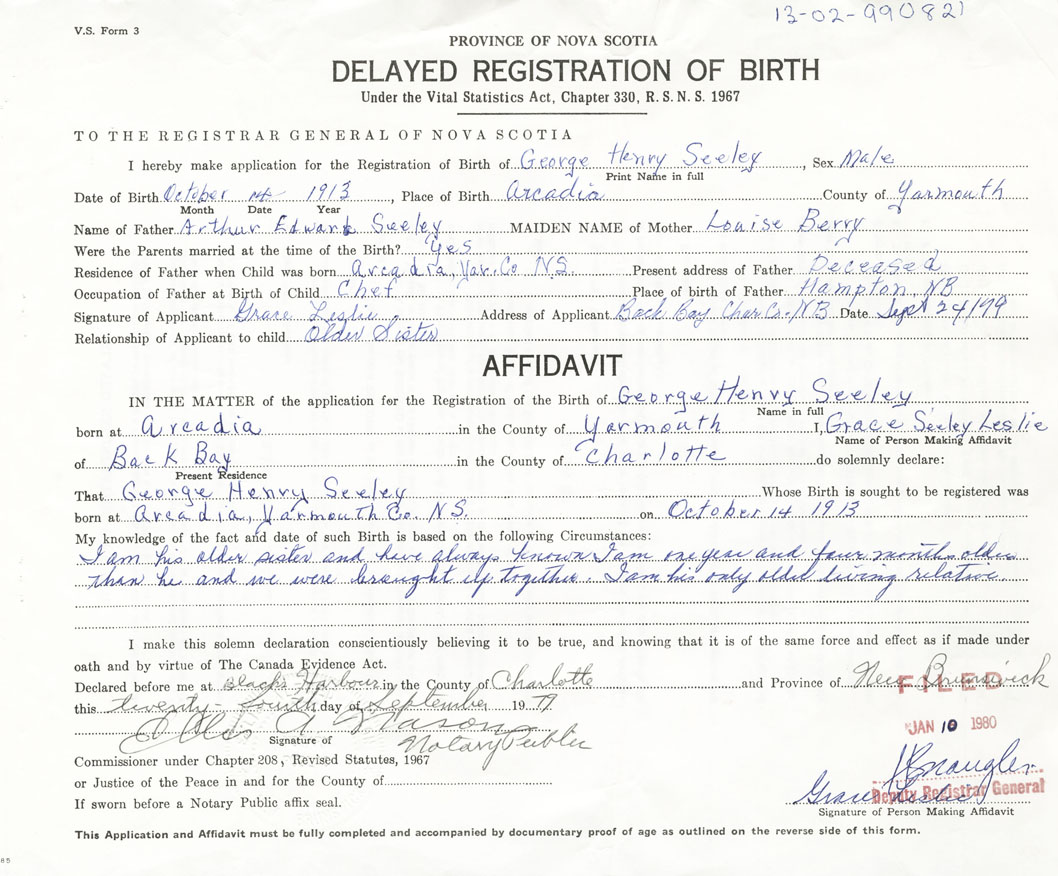 13-02-990821
V.S. Form 3
PROVINCE OF NOVA SCOTIA
DELAYED REGISTRATION OF BIRTH
Under the Vital Statistics Act, Chapter 330, R.S.N.S. 1967
TO THE REGISTRAR GENERAL OF NOVA SCOTIA
I hereby make application for the Registration of Birth of George Henry Seeley, Sex Male
Print Name in full
Date of Birth October 14 1913, Place of Birth Arcadia County of Yarmouth
Month Date Year
Name of Father Arthur Edward Seeley MAIDEN NAME of Mother Louise Berry
Were the Parents married at the time of the Birth? Yes
Residence of Father when Child was born Arcadia, Yar. Co N.S. Present address of Father Deceased
Occupation of Father at Birth of Child Chef Place of birth of Father Hampton, NB
Signature of Applicant Grace Leslie Address of Applicant Back Bay Char Co. NB Date Sept 24/79
Relationship of Applicant to child Older Sister
AFFIDAVIT
IN THE MATTER of the application for the Registration of the Birth of George Henry Seeley
Name in full
born at Arcadia in the County of Yarmouth I, Grace Seeley Leslie
Name of Person Making Affidavit
of Back Bay in the County of Charlotte do solemnly declare:
Present Residence
That George Henry Seeley Whose Birth is sought to be registered was
born at Arcadia, Yarmouth Co. N.S. on October 14 1913
My knowledge of the fact and date of such Birth is based on the following Circumstances:
I am his older sister and have always known I am one year and four months older
than he and we were brought up together. I am his only older living relative.
I make this solemn declaration conscientiously believing it to be true, and knowing that it is of the same force and effect as if made under
oath and by virtue of The Canada Evidence Act.
Declared before me at Blacks Harbour in the County of Charlotte and Province of New Brunswick
FILED
this twenty-fourth day of September 1979
JAN 10 1980
Signature of
Notary Public
Commissioner under Chapter 208, Revised Statutes, 1967
or Justice of the Peace in and for the County of
Grace Leslie
Deputy Registrar General
If sworn before a Notary Public affix seal.
Signature of Person Making Affidavit
This Application and Affidavit must be fully completed and accompanied by documentary proof of age as outlined on the reverse side of this form.
85